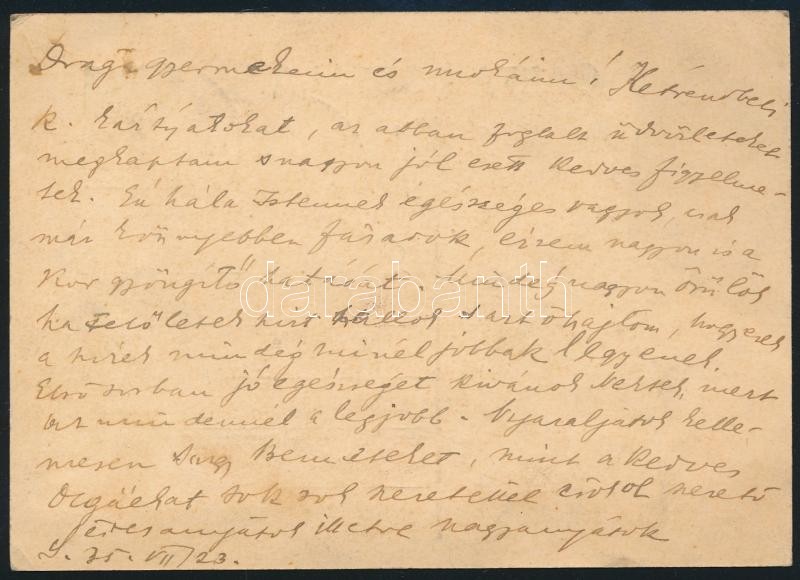 Drága gyermekeim és unokáim! Kétrendbeli
k. kártyátokat, az abban foglalt üdvözleteket
megkaptam s nagyon jól esett kedves figyelme-
tek. Én hála Istennek egészséges vagyok, csak
már könnyebben fáradok, érzem nagyon is a
kor gyöngítő hatását. Mindég nagyon örülök
ha Felőletek hírt hallok s azt óhajtom, hogy ezek
a hírek mindég minél jobbak legyenek
Első sorban jó egészséget kívánok Nektek, mert
az mindennél a legjobb. Nyaraljatok kelle-
mesen Benneteket, mint a kedves
sok sok szeretettel csókol szerető
édesanyátok illetve nagyanyátok
35. VII/23.
darabanth